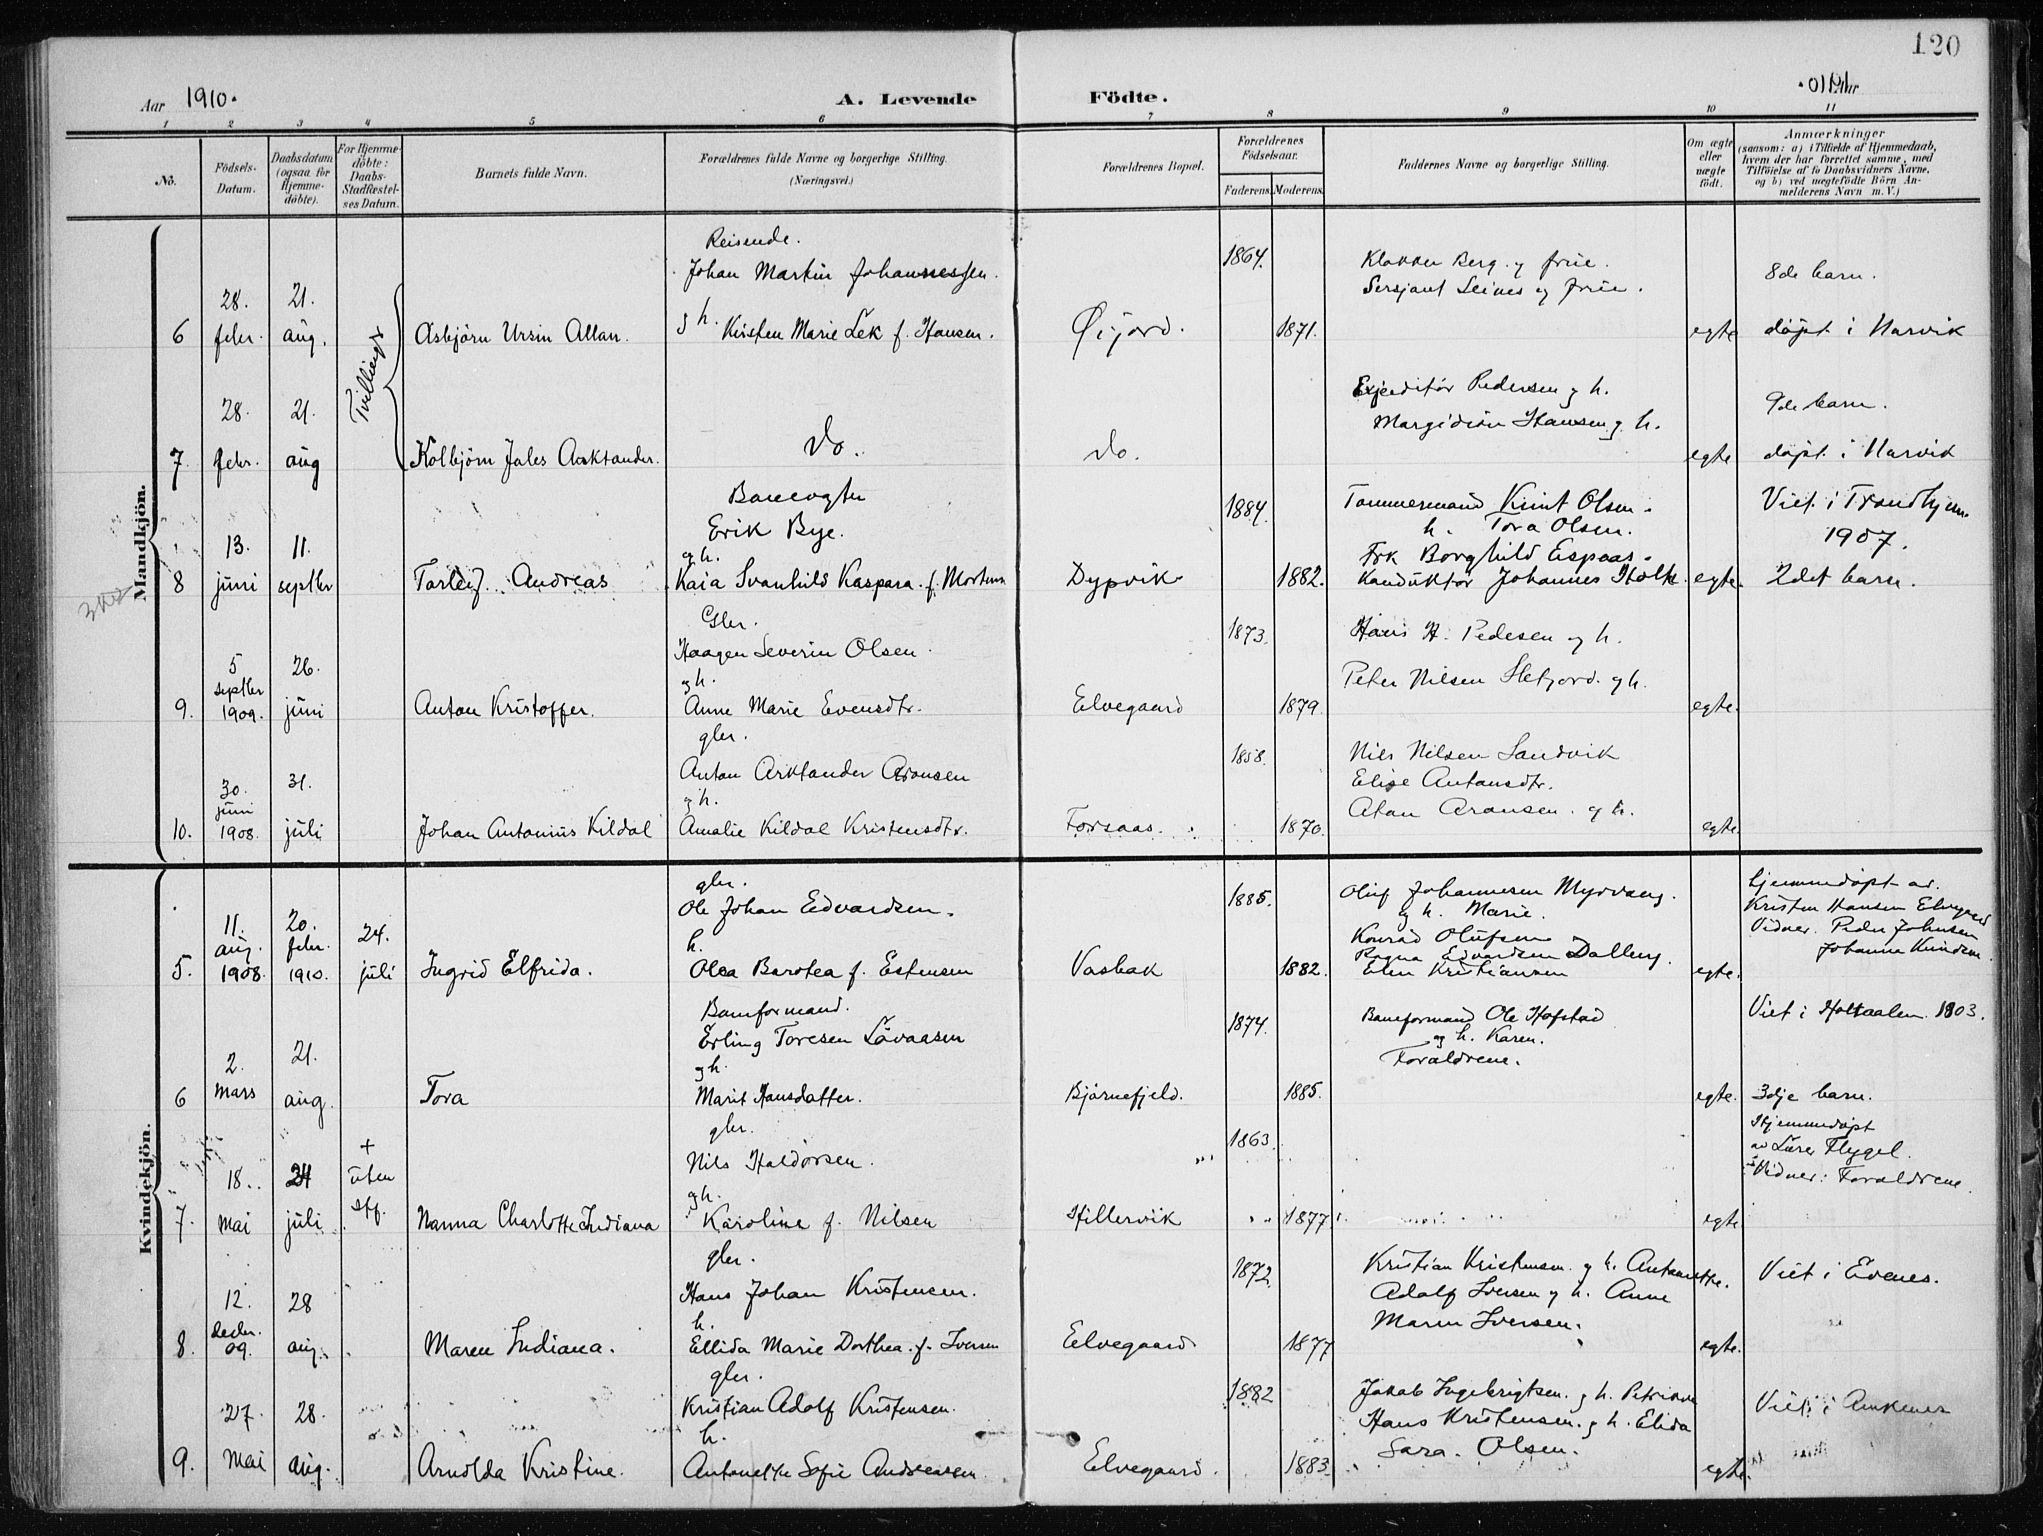 120
Aar 1910.
A. Levende Födte.
1910. Aar
1 2 3 4 5 6 7 8 9 10 11
No.
Födsels-Datum.
Daabsdatum (ogsaa for Hjemmedöbte).
For Hjemmedöbte: Daabs-Stadfæstelses Datum.
Barnets fulde Navn.
Forældrenes fulde Navne og borgerlige Stilling. (Næringsvei.)
Forældrenes Bopæl.
Forældrenes Födselsaar.
Faderens. Moderens.
Faddernes Navne og borgerlige Stilling.
Om ægte eller uægte födt.
Anmærkninger
(saasom: a) i Tilfælde af Hjemmedaab,
hvem der har forrettet samme, med
Tilföielse af to Daabsvidners Navne,
og b) ved uægtefödte Börn An-
melderens Navn m. V.)
Mandkjön.
Tvillinger
Reisende.
Johan Martin Johannessen.
1864.
Klokker Berg. og frue.
Sersjant Leines og frue.
8de barn.
28. 21.
6 febr. aug. Asbjörn Ursin Allan. g h. Kirsten Marie Lek f. Hansen. Øijord. 1871. egte døpt i Narvik
Expeditör Pedersen g h.
Hansen g. h.
9de barn.
28. 21.
7. febr. aug Kolbjörn Jales Arktander. do. do. egte døpt i Narvik
Banevogter
Erik Bye.
1884.
Tømmermand Knut Olsen.
h. Tora Olsen.
Frk Borghild Espaas.
Viet i Trondhjem
1907.
13. 11.
og h.
8 juni septbr Torleif Andreas Kaia Svanhild Kaspara. f. Morten Dypvik 1882. Konduktør Johannes Holte. egte. 2det barn.
Gbr.
Haagen Severin Olsen.
1873.
Hans H. Pedesen og h.
5 26.
og h.
Peter Nilsen Slefjord. g h.
septbr
9. 1909. juni Anton Kristoffer. Anne Marie Evensdtr. Elvegaard 1879. egte.
gbr.
Anton Arktander Aronsen
1858.
Nils Nilsen Sandvik
Elise Antonsdtr.
30. 31.
og h.
Aronsen. g h.
juni
10. 1908. juli Johan Antonius Kildal Amalie Kildal Kristensdtr. Forsaas. 1870. egte.
Kvindekjön.
gbr.
Ole Johan Edvardsen.
1885.
Oluf Johannesen Myrvang.
og h. Marie.
Konrad Olufsen
Ragna Edvardsen Dalberg.
hjemmedøpt av.
Kristen Hansen Elvegaard
Vidner. Peder Johnsen
Johanne
11. 20.
aug. febr. 24.
h.
5. 1908. 1910. juli Ingrid Elfrida. Olea Barotea f. Estensen Vasbak 1882. Elen Kristiansen egte.
Baneformand.
Erling Toresen Lövaasen
1874.
Baneformand Ole Hofstad
og h. Karen.
Foraldrene.
Viet i Holtaalen 1903.
2. 21.
og h.
6 Mars aug. Tora Marit Hansdatter. Bjørnefjeld. 1885. egte. 3dje barn.
gbr.
Nils Haldorsen.
1863.
Hjemmedøpt
av Lærer Flygel.
Vidner: Foraldrene.
18. 24
+
uten
stf.
og h.
7. Mai juli Nanna Charlotte Indiana Karoline f. Nilsen Hillervik 1877 egte
gbr.
Hans Johan Kristensen.
1872.
Kristian Kristensen. g h. Antonette.
Adolf Iversen g h. Anne
Maren Iversen.
Viet i Evenes.
12. 28
h.
decbr.
8. 09. aug. Maren Indiana. Ellida Marie Dorthea. f. Iversen Elvegaard 1877 egte.
gbr.
Kristian Adolf Kristensen.
1882
Jakob Ingebrigtsen. g h. Petrikke
Hans Kristensen. g h. Elida
Sara. Olsen.
Viet i Ankenes
27. 28.
h.
9. Mai aug. Arnolda Kristine. Antonette Sofie Andreassen Elvegaard. 1883. egte.